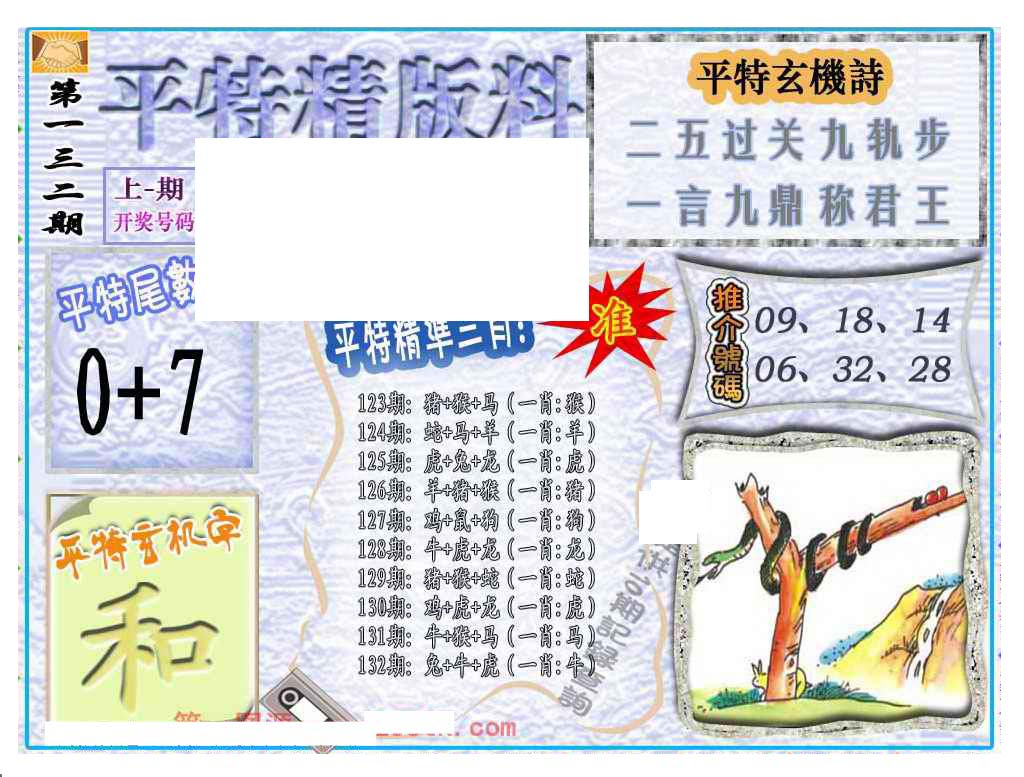 第一三二期
平特精版料
上-期
开奖号码
平特玄機詩
二五过关九轨步
一言九鼎称君王
平特尾數
0+7
平特精準三肖!
准
推介號碼
09、18、14
06、32、28
123期: 猪+猴+马 (一肖:猴)
124期: 蛇+马+羊 (一肖:羊)
125期: 虎+兔+龙 (一肖:虎)
126期: 羊+猪+猴 (一肖:猪)
127期: 鸡+鼠+狗 (一肖:狗)
128期: 牛+虎+龙 (一肖:龙)
129期: 猪+猴+蛇 (一肖:蛇)
130期: 鸡+虎+龙 (一肖:虎)
131期: 牛+猴+马 (一肖:马)
132期: 兔+牛+虎 (一肖:牛)
平特玄机字
和
期記錄查詢
.com